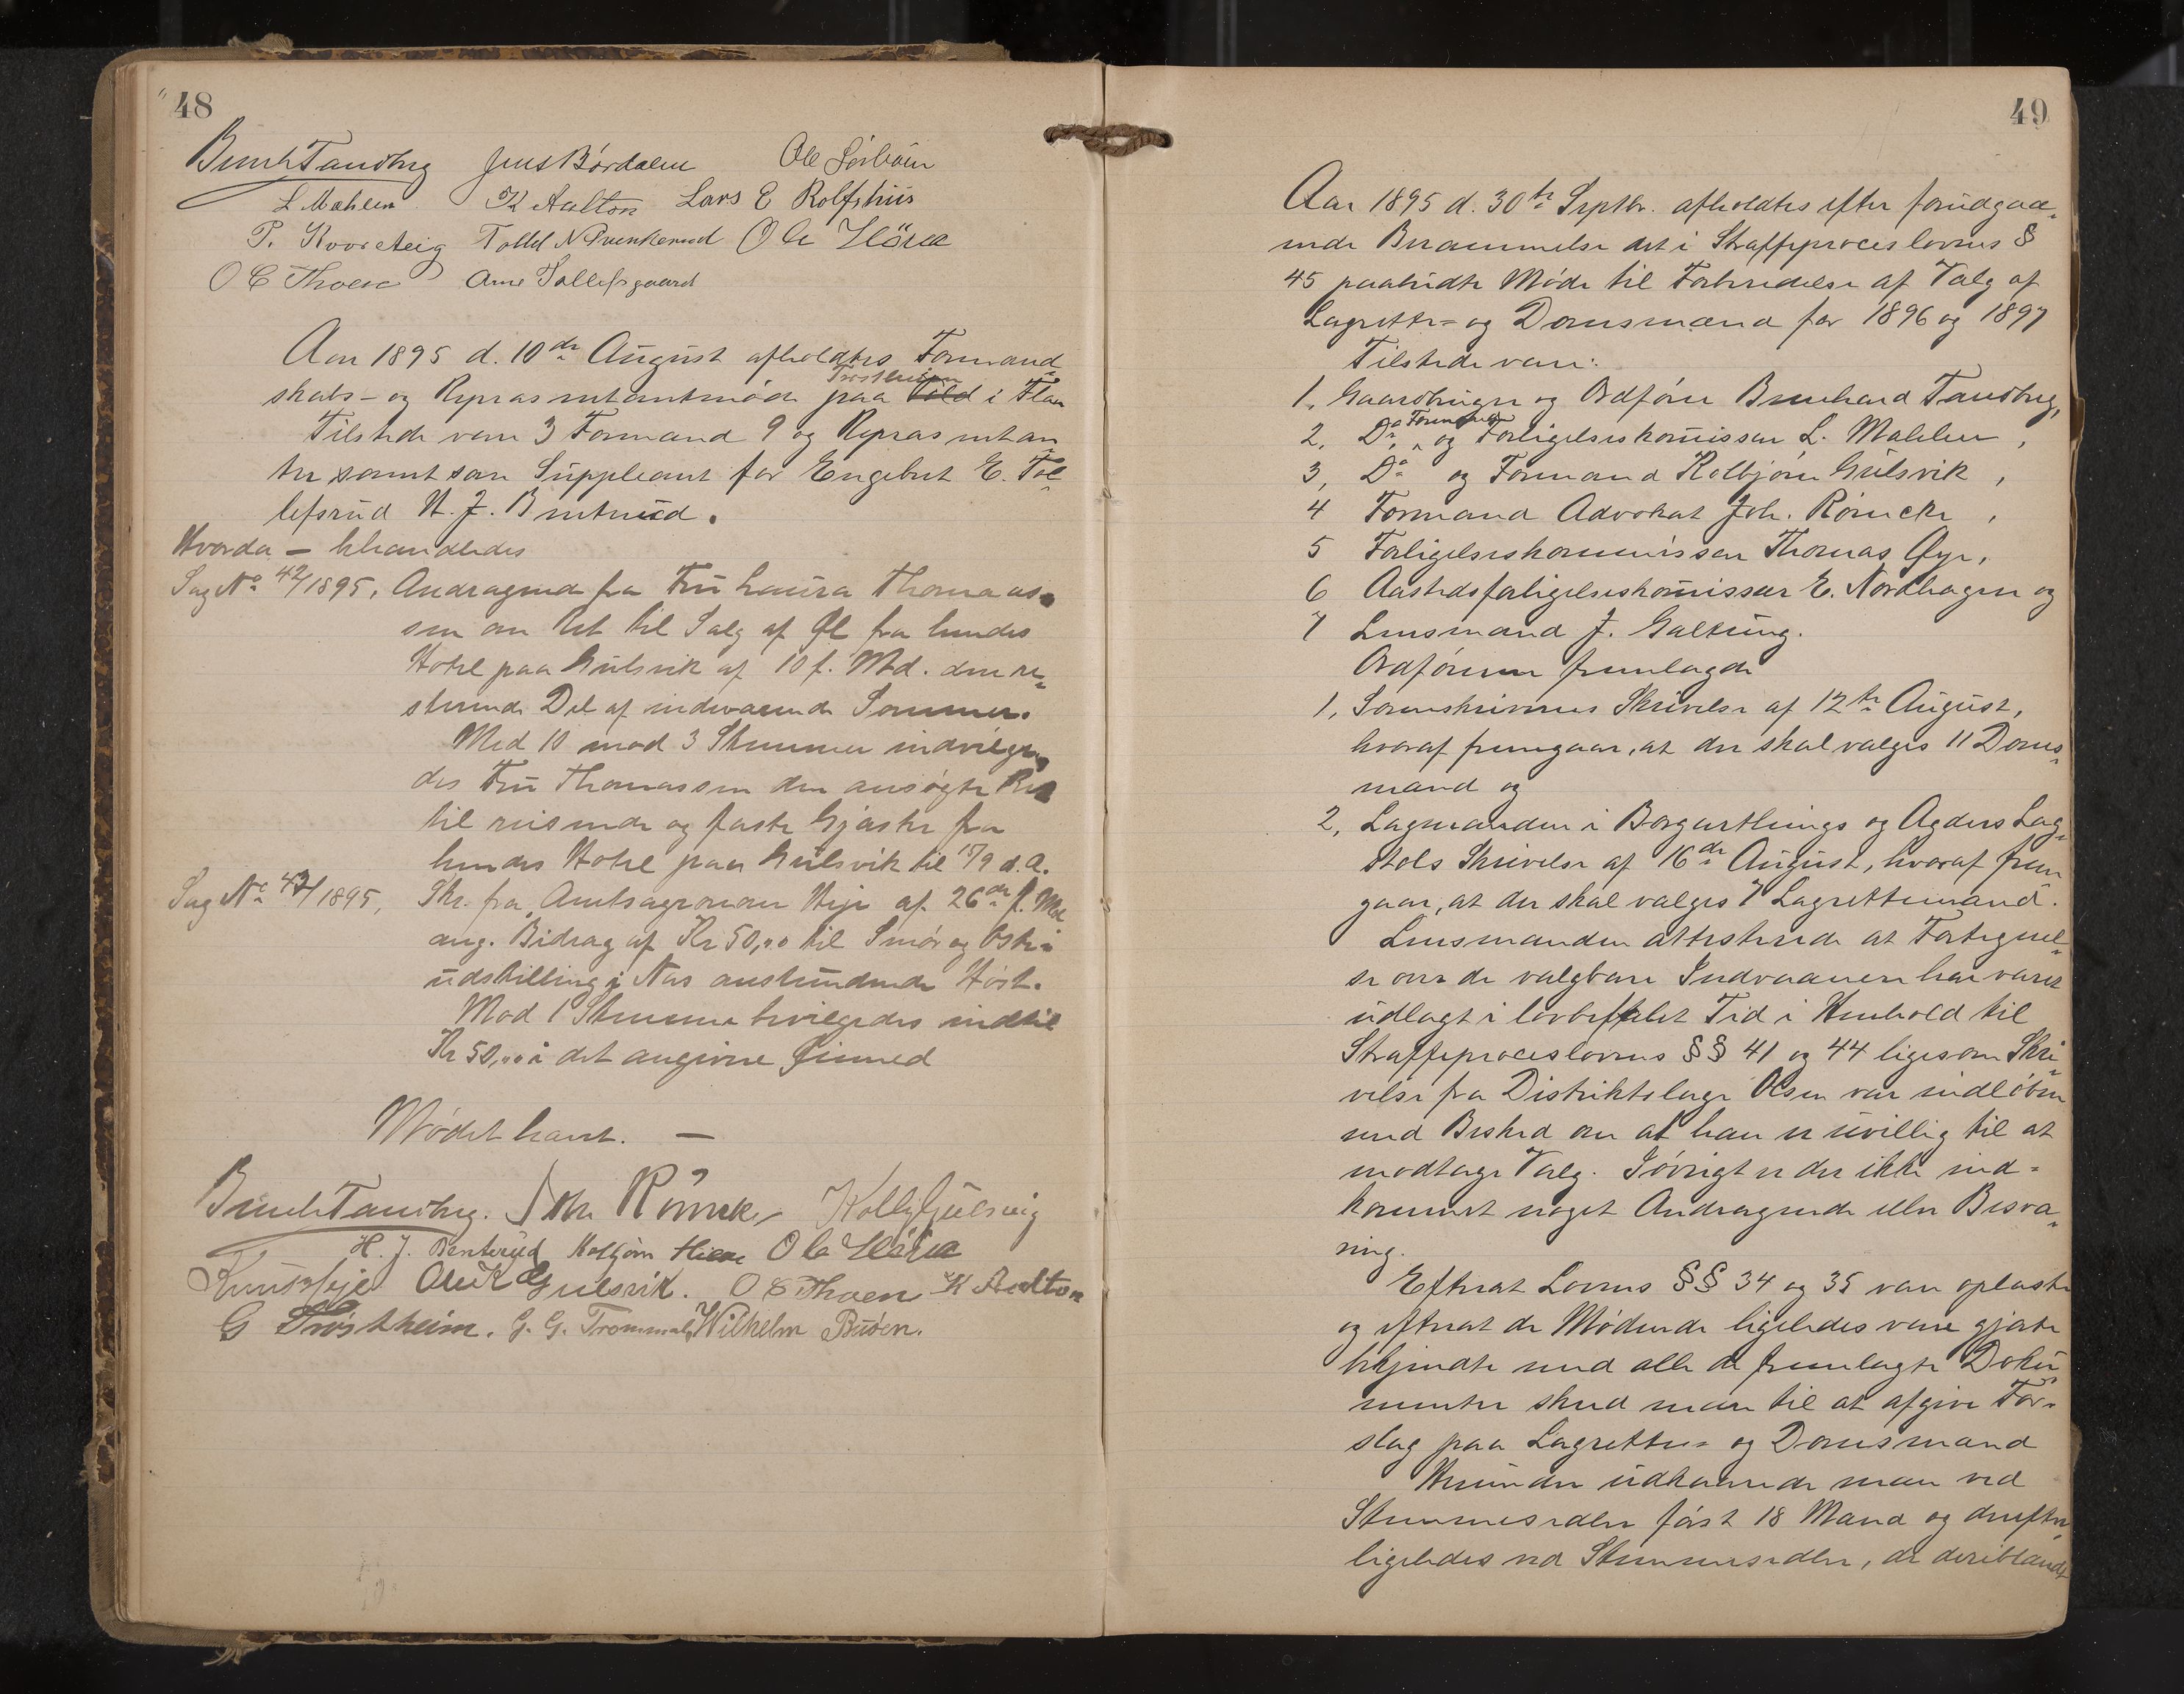 48
BernhTandbrg Jens Bórdalen Ole Sórbóen
L Mæhlen K Aalton Lars E Rolfshus
T. Kvorsteig Tollef N Trunkerud Ole Hóva
O E Thoen Arne Tollefsgaard
Aar 1895 d. 10de August afholdtes Formand-
skabs- og Repræsentantmóde paa Tróstheim i Flaa
Tilstede vare 3 Formænd 9 og Repræsentan-
ter samt som Suppleant for Engebret E. Tol-
lefsrud H. J. Bentrud.
Hvorda — behandledes
Sag No 42/1895, Andragende fra Fru Laura Thomas-
sen om Ret til Salg af Øl fra hendes
Hotel paa Gulsvik af 10 f. Md. den re-
sterende Del af indeværende Sommer.
Med 10 mod 3 Stemmer indvilge-
des Fru Thomassen den ansógte Ret
til reisende og faste Gjæster fra
hendes Hotel paa Gulsvik til 15/9 d. A.
Sag No 43/1895, Skr. fra Amtsagronom Heje af 26de f. Md
ang. Bidrag af Kr 50,00 til Smór og Oste-
udstilling i Næs anstundende Hóst.
Mod 1 Stemme bevilgedes indtil
Kr 50,00 i det angivne Øiemed
Módet hævt. —
BernhTandbrg. Joh Rómcke Kolbj Gulsvig
H. J. Bentrud Kolbjórn Hieme Ole Hóva
Knut Heje Ole K Gulsvik. O E Thoen K Aalton
G Tróstheim. G. G. Trommald Wilhelm Buóen.
49
Aar 1895 d. 30te Septbr. afholdtes efter forudgaa-
ende Berammelse det i Straffeproceslovens §
45 paabudte Móde til Forberedelse af Valg af
Lagrette- og Domsmænd for 1896 og 1897
Tilstede vare:
1, Gaardbruger og Ordfórer Bernhard Tandberg,
2, Do Formand og Forligelseskomissær L. Mæhlen,
3, Do og Formand Kolbjórn Gulsvik,
4 Formand Advokat Joh. Rómcke,
5 Forligelseskommissær Thomas Øye,
6 Aastedsforligelseskomissær E. Nordhagen og
7 Lensmand J. Galtung.
Ordfóreren fremlagde
1, Sorenskriverens Skrivelse af 12te August,
hvoraf fremgaar, at der skal vælges 11 Doms-
mænd og
2, Lagmanden i Borgarthings og Agders Lag-
stols Skrivelse af 16de August, hvoraf frem-
gaar, at der skal vælges 7 Lagrettemænd.
Lensmanden attesterede at Fortegnel-
se over de valgbare Indvaanere har været
udlagt i lovbefalet Tid i Henhold til
Straffeproceslovens §§ 41 og 44 ligesom Skri-
velse fra Distriktslæge Olsen var indlóben
med Besked om at han er uvillig til at
modtage Valg. Ióvrigt er der ikke ind-
kommet noget Andragende eller Besvæ-
ring.
Efterat Lovens §§ 34 og 35 var oplæste
og efterat de Módende ligeledes vare gjorte
bekjendte med alle de fremlagte Doku-
menter skred man til at afgive For-
slag paa Lagrette- og Domsmænd
Herunder udkaarede man ved
Stemmesedler fórst 18 Mænd og derefter
ligeledes ved Stemmesedler, de deriblandt